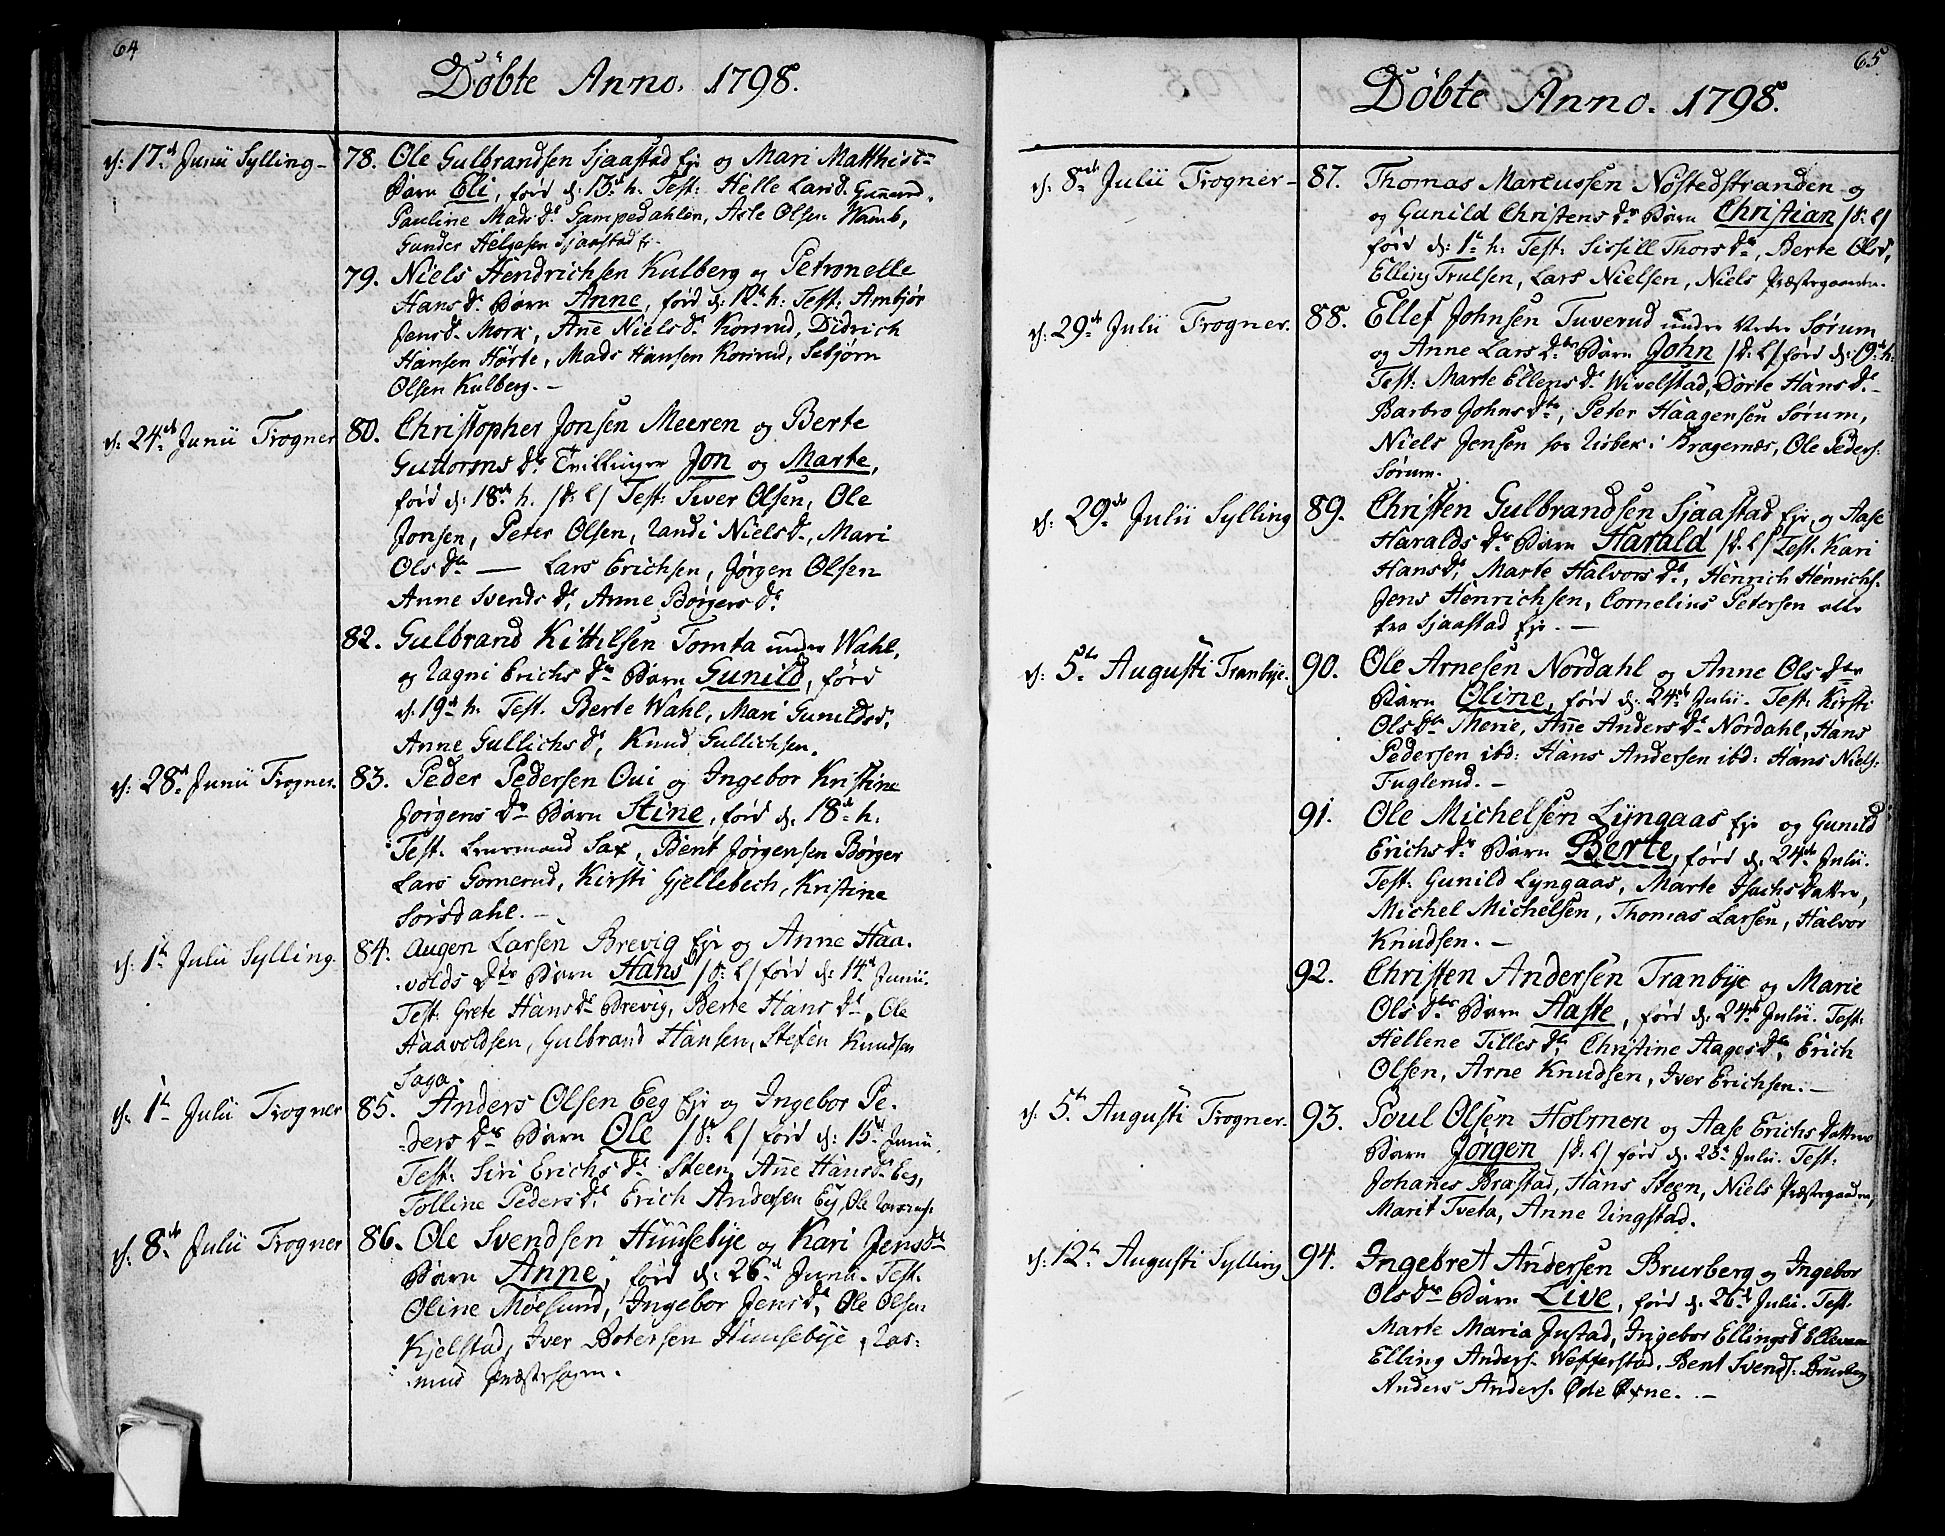 64
Döbte Anno. 1798.
d: 17d Junii Sylling
78. Ole Gulbrandsen Sjaastad Eje og Mari Matthist=
Barn Eli, förd d: 13d h. Test: Helle Larsd.
Pauline Mads Dr Gampedahlen, Asle Olsen Wamb,
Gunder Helgesen Sjaastad Er.
79. Niels Hendrichsen Kulberg og Petronelle
Hans dr Barn Anne, förd d: 12t h: Test: Ambjör
Jensd. Mork, Añe Niels dr Konnrud, Didrich
Hansen Hörte, Mads Hansen Konnrud, Sebjörn
Olsen Kulberg. –
d: 24de Junii Trogner
80. Christopher Jonsen Meeren og Berte
Guttorms dr Tvillinger Jon og Marte,
förd d: 18de h. /d: L/ Test: Siver Olsen, Ole
Jonsen, Peter Olsen, Randi Nielsd., Mari
Ols dtr — Lars Erichsen, Jörgen Olsen
Anne Svends dr, Anne Börgers dr
82. Gulbrand Kittilsen Tomta under Wahl,
og Ragni Erichs dr Barn Gunild, förd
d. 19d h. Test. Berte Wahl, Mari Gunildsd.
Anne Gullichs dr, Knud Gullichsen.
d: 28d Junii Trogner.
83. Peder Pedersen Oui og Ingebor Kristine
Jörgens dr Barn Stine, förd d: 18de h.
Test. Lensmand Sax, Bent Jörgensen Börger
Lars Gomerud, Kirsti Gjellebech, Kristine
Sörsdahl. –
d: 1te Julii Sylling.
84. Augon Larsen Brevig Eje og Anne Haa=
volds dtr Barn Hans /d: L/ förd d: 14d Junii.
Test: Grete Hans dr Brevig, Berte Hans dr, Ole
Haavoldsen, Gulbrand Hansen, Stefen Knudsen
Saga.
d: 1te Julii Trogner
85. Anders Olsen Eeg Eje og Ingebor Pe=
ders dr Barn Ole /d: L/ förd d: 15d Junii.
Test: Siri Erichs dr Steen, Añe Hansdr Eeg,
Tolline Peders dr Erich Andersen Eg, Ole
d: 8de Julii Trogner
86. Ole Svendsen Huusebÿe og Kari Jens dr
Barn Anne, förd d: 26d Junii. Test.
Oline Möesund, Ingebor Jens dr, Ole Olsen
Kjelstad, Iver Botersen Huusebÿe, Ras=
mus Præstegrn.
65.
Döbte Anno. 1798.
d: 8de Julii Trogner –
87. Thomas Marcussen Nöstedstranden og
og Gunild Christens dr Barn Christian /d: L/
förd d: 1te h: Test: Sissill Thors dr, Berte Olsd,
Elling Trulsen, Lars Nielsen, Niels Præstegaarden.
d: 29de Julii Trogner.
88. Ellef Johnsen Tuverud under Vestre Sörum
og Anne Lars dtr Barn John /d: L/ förd d: 19de h:
Test: Marte Ellens dr Wivelstad, Dorte Hans dr –
Barbro Johns dtr, Peter Haagensen Sörum,
Niels Jensen fra Risbek i Bragernæs, Ole Peders:
Sörum.
d: 29de Julii Sylling
89. Christen Gulbrandsen Sjaastad Eje, og Aase
Haralds dr Barn Harald /d: L/ Test: Kari
Hans dr, Marte Halvors dr, Henrich Henrichs.
Jens Henrichsen, Cornelius Petersen alle
fra Sjaastad Eje. –
d: 5te Augusti Tranbÿe.
90. Ole Arnesen Nordahl og Anne Ols dtr
Barn Oline, förd d: 24de Julii. Test: Kirsti
Ols dtr Merie, Añe Anders dr Nordahl, Hans
Pedersen ibd: Hans Andersen ibd: Hans Niels:
Fuglerud. –
91. Ole Michelsen Lÿngaas Eje og Gunild
Erichs dr Barn Berte, förd d: 24de Julii.
Test: Gunild Lyngaas, Marte Isachs datter,
Michel Michelsen, Thomas Larsen, Halvor
Knudsen. –
92. Christen Andersen Tranbÿe og Marie
Ols dtr Barn Aaste, förd d: 24de Julii. Test:
Hellene Tilles dtr, Christine Aages dr, Erich
Olsen, Arne Knudsen, Iver Erichsen. –
d: 5te Augusti Trogner.
93. Poul Olsen Holmen og Aase Erichs datters
Barn Jörgen /d: L/ förd d: 25d Julii. Test:
Johanes Brastad, Hans Stegn, Niels Præstegaarden,
Marit Tveta, Anne Ringstad.
d: 12te Augusti Sylling
94. Ingebret Andersen Brurberg og Ingebor
Ols dtr Barn Live, förd d: 26d Julii. Test:
Marte Maria Justad, Ingebor Ellings dr
Elling Anders. Wefferstad, Bent Svends: Brurberg
Anders Anders. Öde Öxne. –